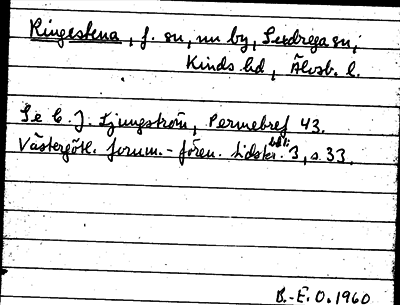 Ringestena, f. sn, nu by, Sexdrega sn,
Kinds hd, Älvsb. l.
Se C. J. Ljungström, Permebref 43.
Västergötl. fornm.-fören. tidskr. 3, s. 33.
B.-E. O. 1960